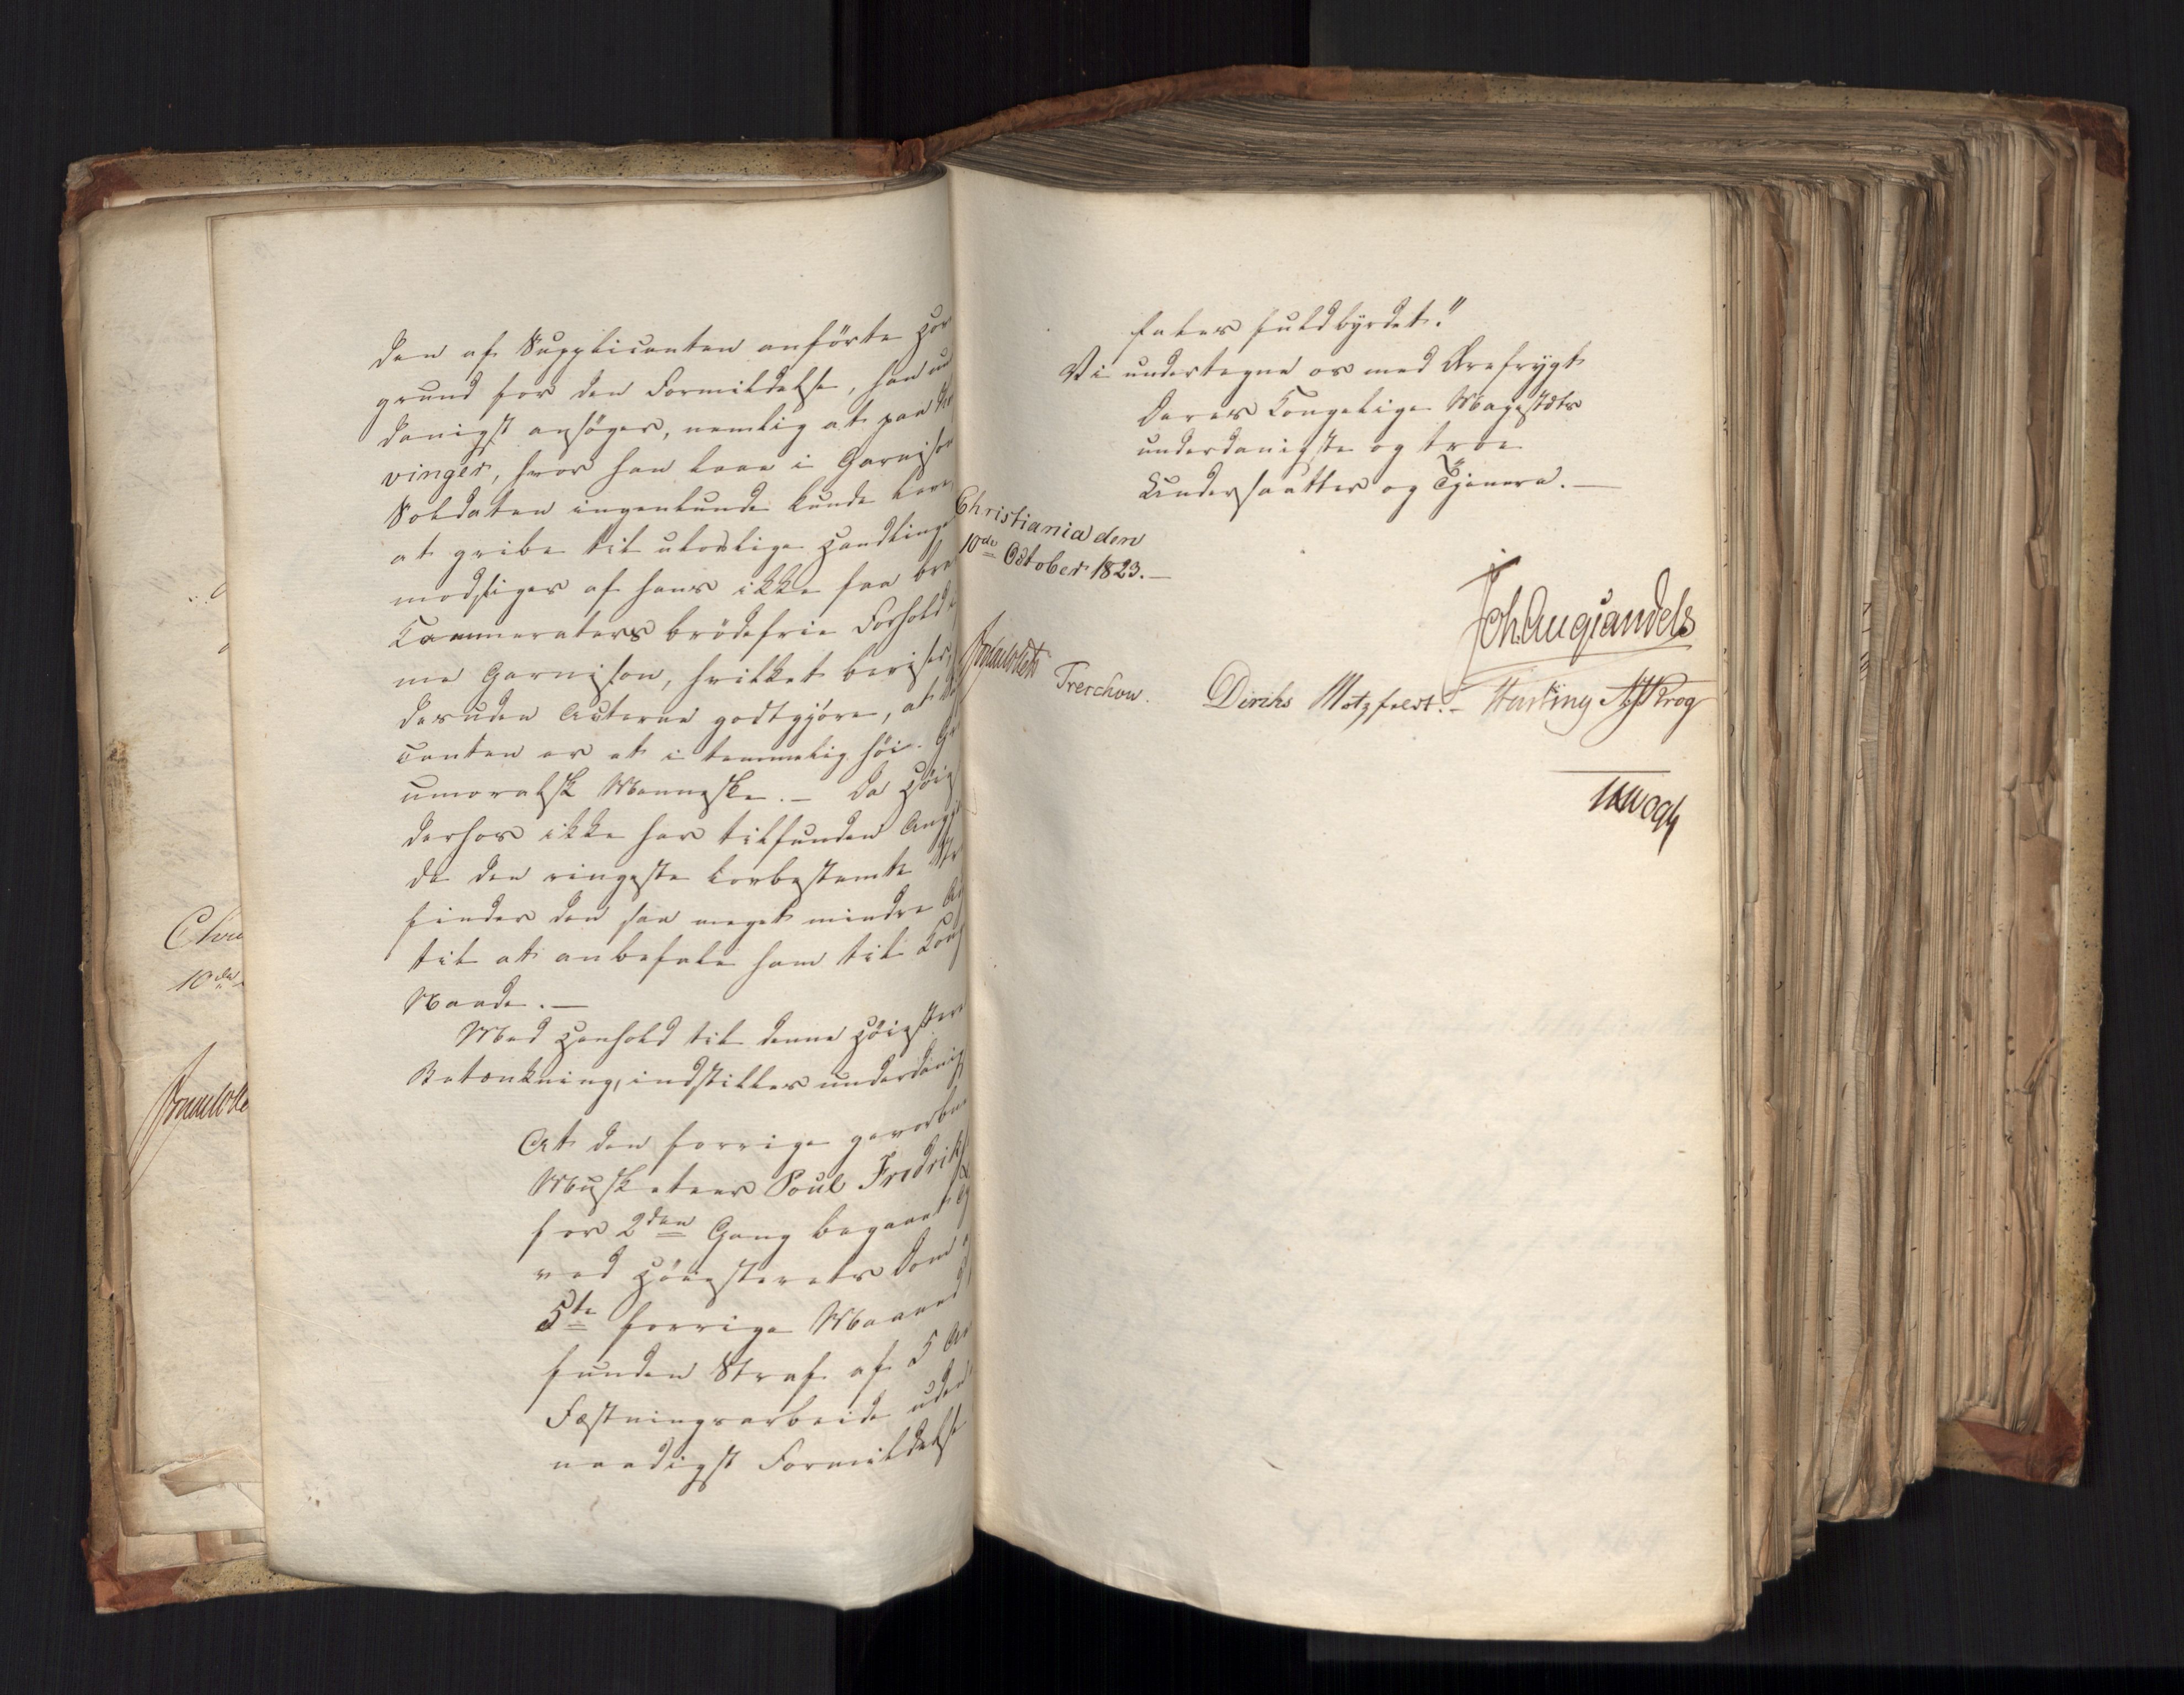 den af Supplicanten anförte
grund for den Formildelse, han
danigst ansøger, nemlig at paa
vinger, hvor han laae i Garnison
Soldaten ingenlunde kunde leve
at gribe til ulovlige Handlinge
modsiges af hans ikke faa
Cammeraters brödefrie Forhold
me Garnison, hvilket
desuden Acterne godtgjöre, at
canten er et i temmelig höi
umoralsk Menneske. – Da
derhos ikke har tilfunden
de den ringeste lovbestemte
finder den saa meget mindre
til at anbefale ham til
Naade. –
Med Henhold til denne
Betænkning, indstilles underdanig
At den forrige
Musketeer Poul Fredrik
for 2den Gang begaaet
ved Höiesterets Dom
5te forrige Maaned
funden Straf af 5
Fæstningsarbeide uden
naadigst Formildelse
Chri
10de
fales fuldbyrdet."
Vi undertegne os med Ærefrygt
Deres Kongelige Majestæts
underdanigste og troe
Undersaatter og Tjenere. –
Christiania den
10de October 1823. –
Joh. Aug Sandels
Treschow.
Diriks
Motzfeldt. –
Krog